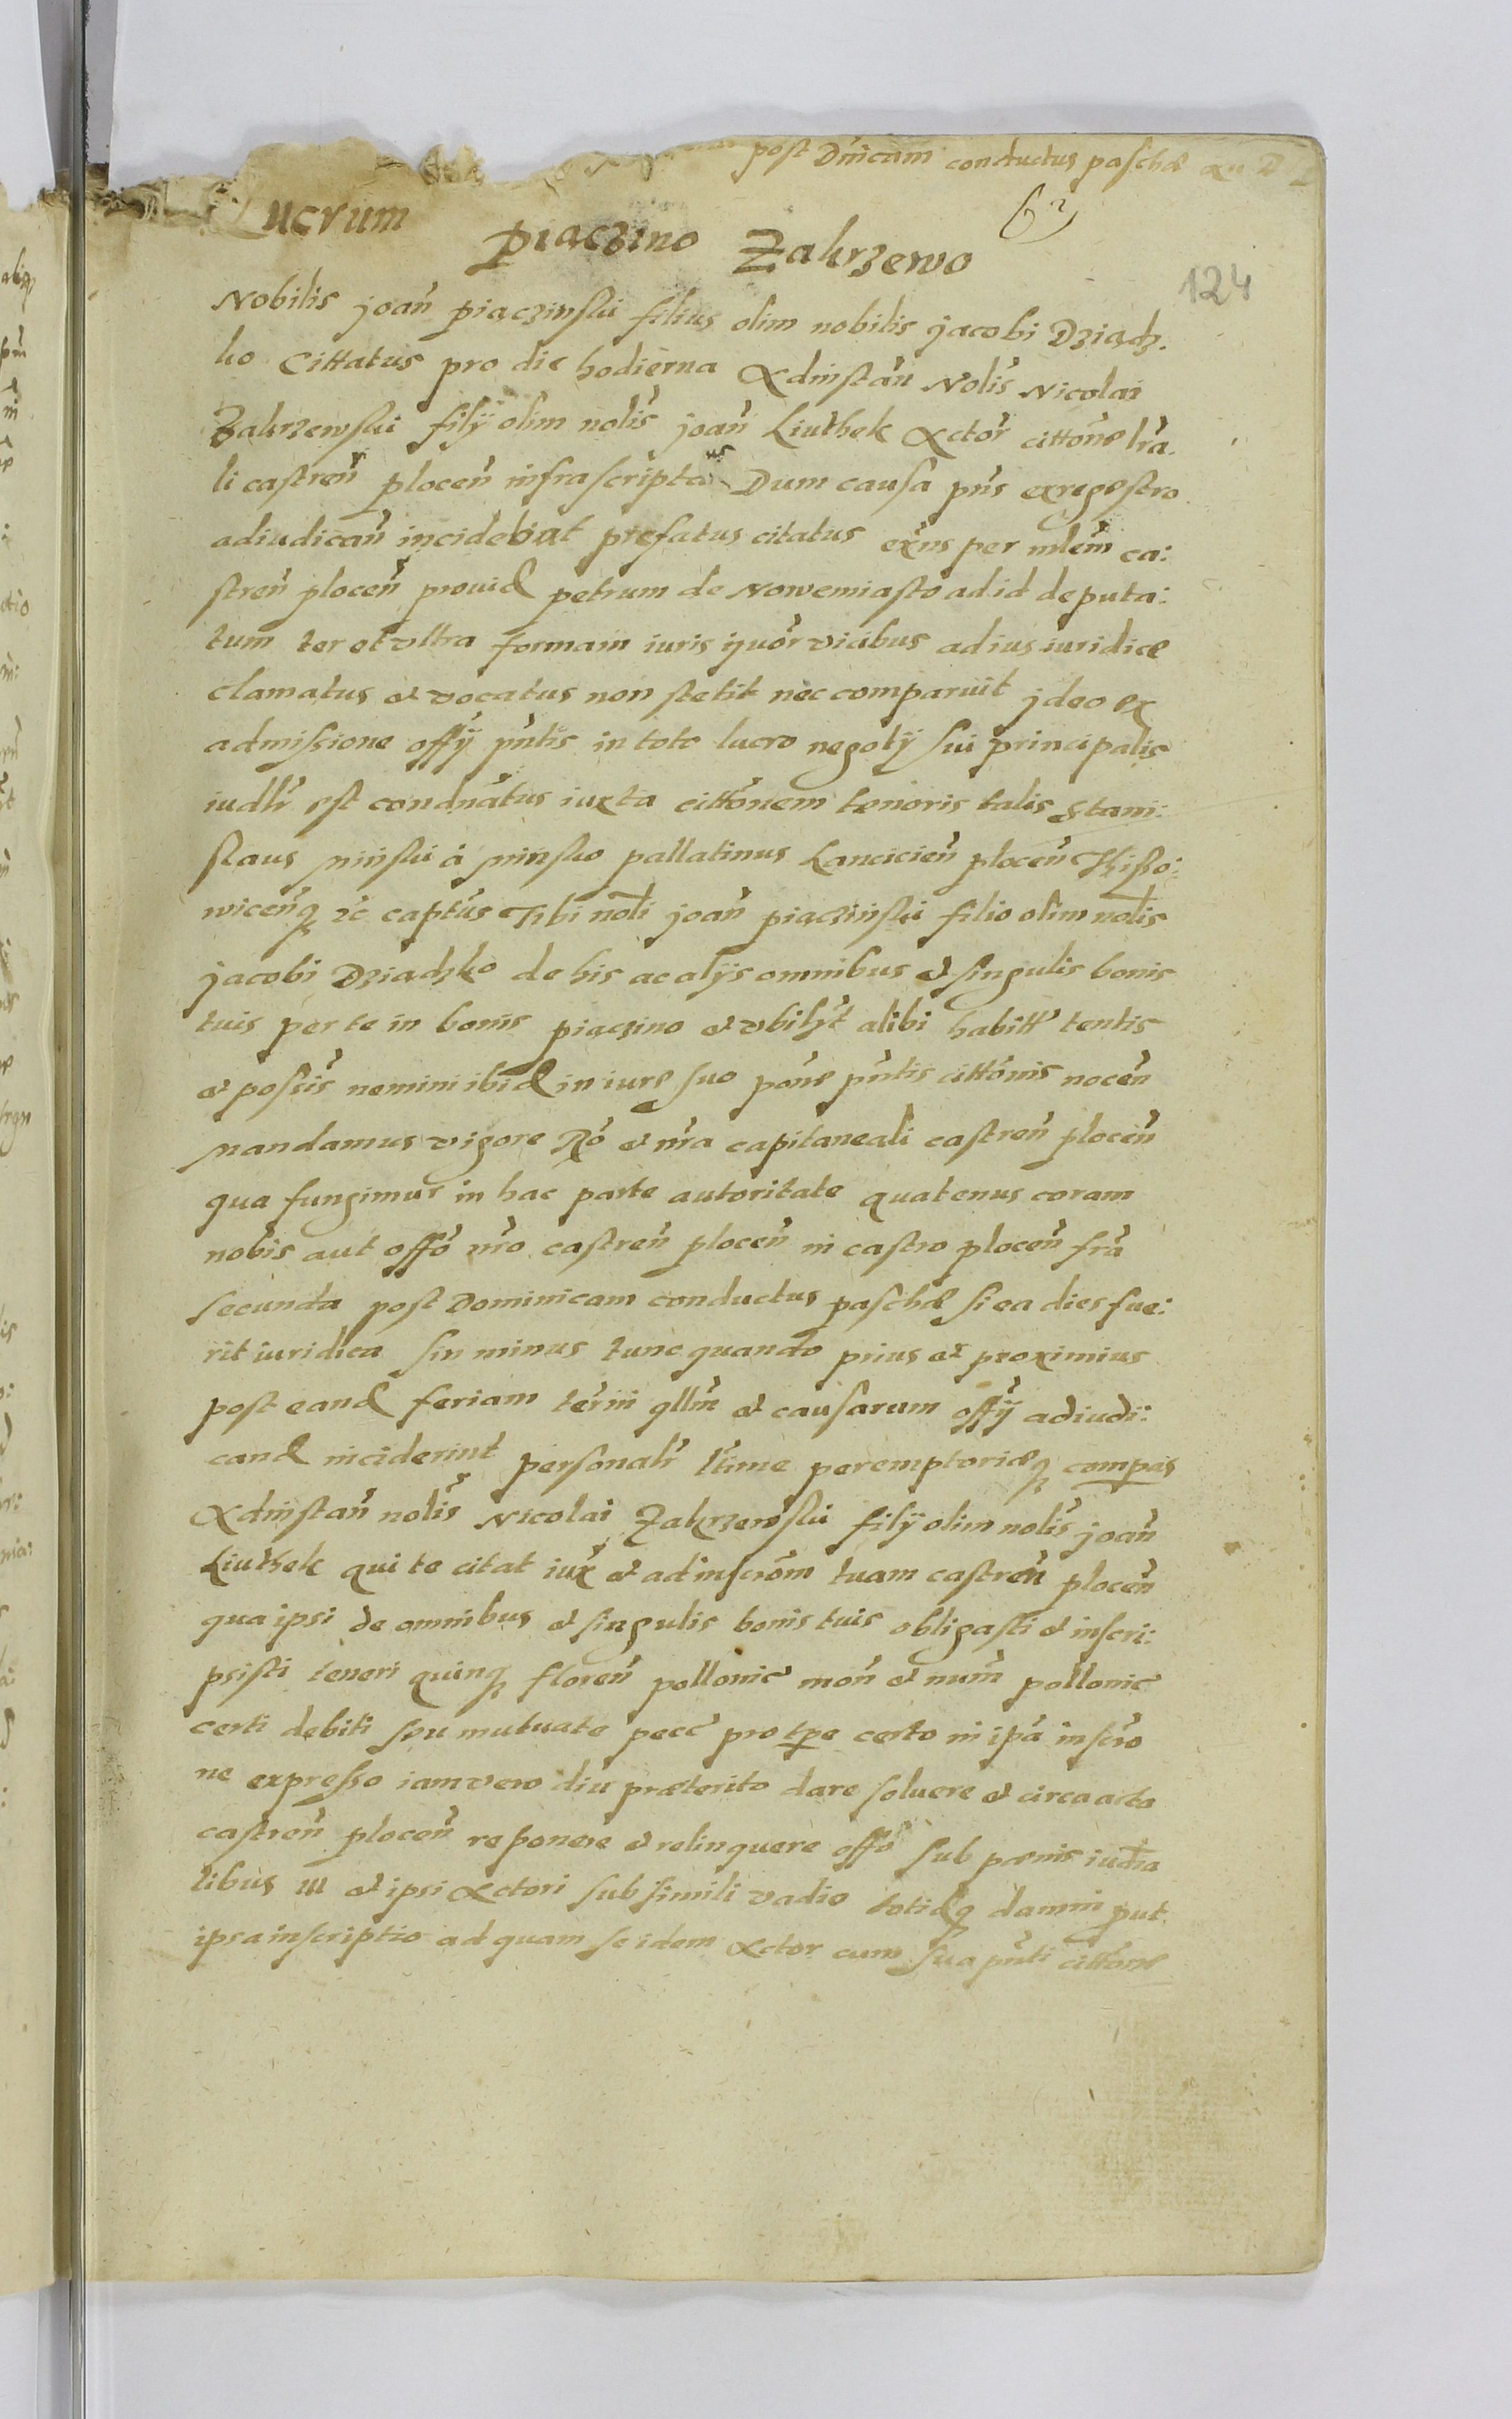 post Dnicam conductus paschæ
Lucrum piączino Zakrzewo
124
Nobilis joan̄ piączinski filius olim nobilis jacobi Dziadz.
ko Cittatus pro die hodierna Adinstan̄ Nolis Nicolai
Zakrzewski filij olim nolis joan̄ Liuthek Actor cittone lra.
li castren̄ plocen̄ infrascripta Dum causa pns exregestro
adiudican̄ incidebiat prefatus citatus exns per mlem ca:
stren̄ plocen̄ prouid petrum de Nowemiasto ad id deputa:
tum ter et vltra formam iuris quor vicibus ad ius iuridice
clamatus et vocatus non stetit nec comparuit jdeo ex
admissione offij pntis in toto lucro negotij sui principalis
iudlr est condnatus iuxta cittonem tenoris talis Stani:
slaus Minski à Minsko pallatinus Lancicien̄ plocen̄ Kisso:
wicenq ac captus Tibi noli joan̄ piączinski filio olim nolis
jacobi Dziadzko de his ac alijs omnibus et singulis bonis
tuis per te in bonis piączino et vbilzt alibi habitt tentis
et possis nemini ibid in iure suo pone pntis cittonis nocen̄
Mandamus vigore Ro et nra capitaneali castren̄ plocen̄
qua fungimur in hac parte autoritate quatenus coram
nobis aut offo nro castren̄ plocen̄ in castro plocen̄ fra
secunda post Dominicam conductus paschæ si ea dies fue:
rit iuridica sin minus tunc quando prius et proximius
post eand feriam termi qllm et causarum offij adiudi:
cand inciderint personalr ltime peremptorieq compas
Adinstan̄ nolis Nicolai Zakrzewski filij olim nolis joan̄
Liuthek qui te citat iux et ad inscrom tuam castren̄ plocen̄
qua ipsi de omnibus et singulis bonis tuis obligasti et inscri:
psisti teneri quinq floren̄ pollonic mon̄ et num̄ pollonic
certi debiti seu mutuate pecc pro tpe certo in ipa inscro
ne expresso iam vero diu præterito dare soluere et circa acta
castren̄ plocen̄ reponere et relinquere offo sub pœnis iudia
libus III et ipsi Actori sub simili vadio totidq damni put
ipsa inscriptio ad quam se idem Actor cum sua pnti cittone